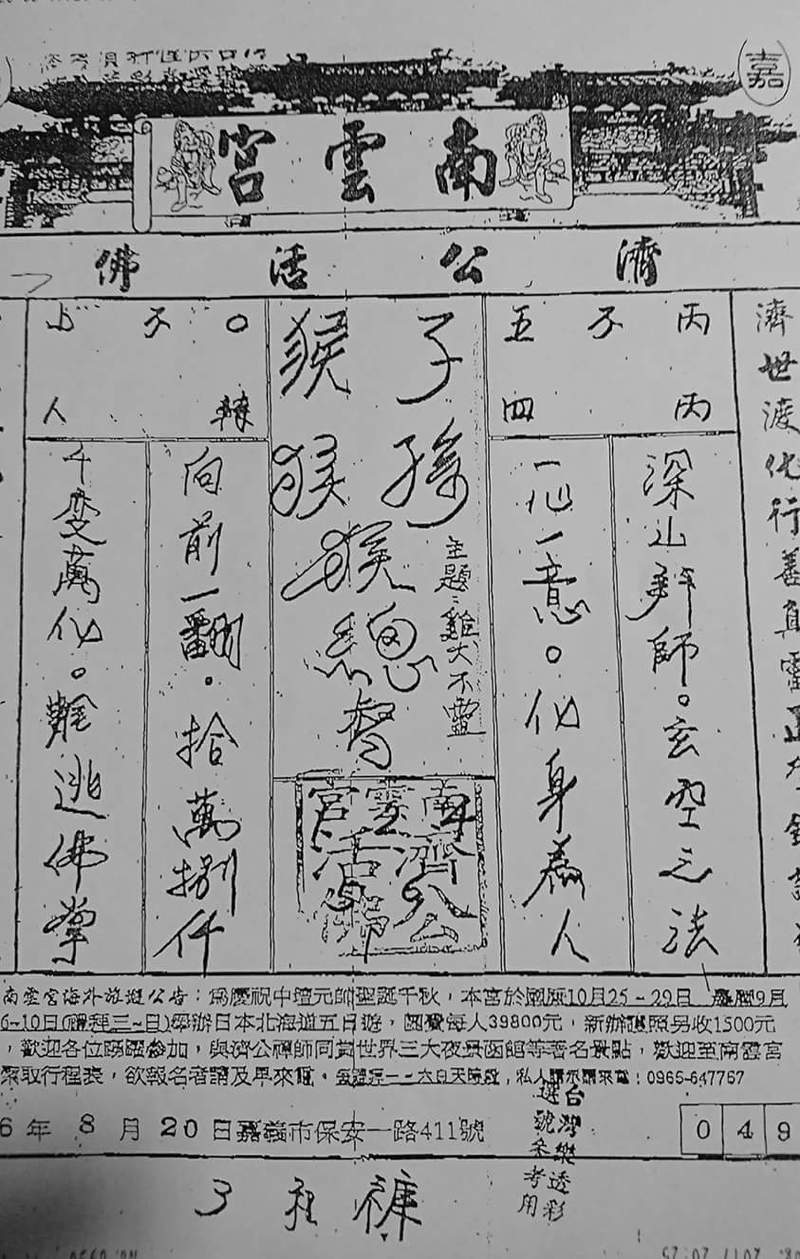 嘉
南雲宮
濟公活佛
濟世渡化行善
丙 子 五
丙 四
深山 師。玄空之法
一心一意。化身為人
子孫
猴猴猴總督
主題：雞犬不靈
南雲宮
濟公
活佛
○ 子
轉 人
向前一翻。拾萬捌仟
千變萬化。難逃佛掌
南雲宮海外旅遊公告：為慶祝中壇元帥聖誕千秋，本宮於國曆10月25~29日 農曆9月
6~10日(禮拜三~日)舉辦日本北海道五日遊，團費每人39800元，新辦護照另收1500元
，歡迎各位踴躍參加，與濟公禪師同賞世界三大夜景函館等著名景點，歡迎至南雲宮
索取行程表，欲報名者請及早來電。 私人 來電：0965-647767
6年 8月20日嘉義市保安一路411號
台灣樂透彩
選號參考用
0 4 9
褲